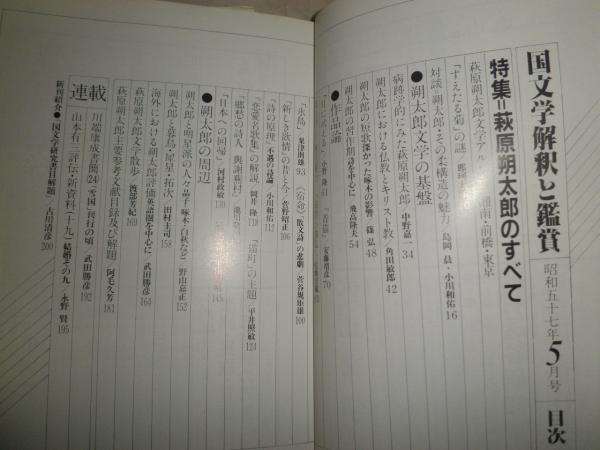 国文学解釈と鑑賞 昭和五十七年5月号 目次
特集=萩原朔太郎のすべて
萩原朔太郎文学アル 湘南・前橋・東京
「すえたる菊」の謎
対談 朔太郎・その柔構造の魅力 島岡 晨・小川和佑 16
●朔太郎文学の基盤
病跡学的にみた萩原朔太郎 中野嘉一 34
朔太郎における仏教とキリスト教 角田敏郎 42
朔太郎の短歌 深かった啄木の影響 篠 弘 48
朔太郎の習作期 詩を中心に 飛高隆夫 54
●作品論
安藤靖彦 70
「氷島」 粟津則雄 93
《宿命》〈散文詩〉の悲劇 菅谷規矩雄 100
「新しき欲情」の昔と今 菅野昭正 106
「詩の原理」 不遇の詩論 小川和佑 112
「恋愛名歌集」の解説 岡井 隆 118
「猫町」の主題 平井照敏 124
「郷愁の詩人 与謝蕪村」
「日本への回帰」 河村政敏 139
145
●朔太郎の周辺
朔太郎と明星派の人々 晶子・啄木・白秋など 野山嘉正 152
朔太郎と暮鳥・犀星・拓次 田村圭司 158
海外における朔太郎評価 英語圏を中心に 武田勝彦 164
萩原朔太郎文学散歩 渡部芳紀 169
萩原朔太郎主要参考文献目録及び解題 阿毛久芳 181
連載
川端康成書簡 24 「雪国」前行の頃 武田勝彦 192
山本有三評伝・新資料(十九) 結婚その九 永野 賢 195
新刊紹介●「国文学研究書目解題」 古川清彦 200